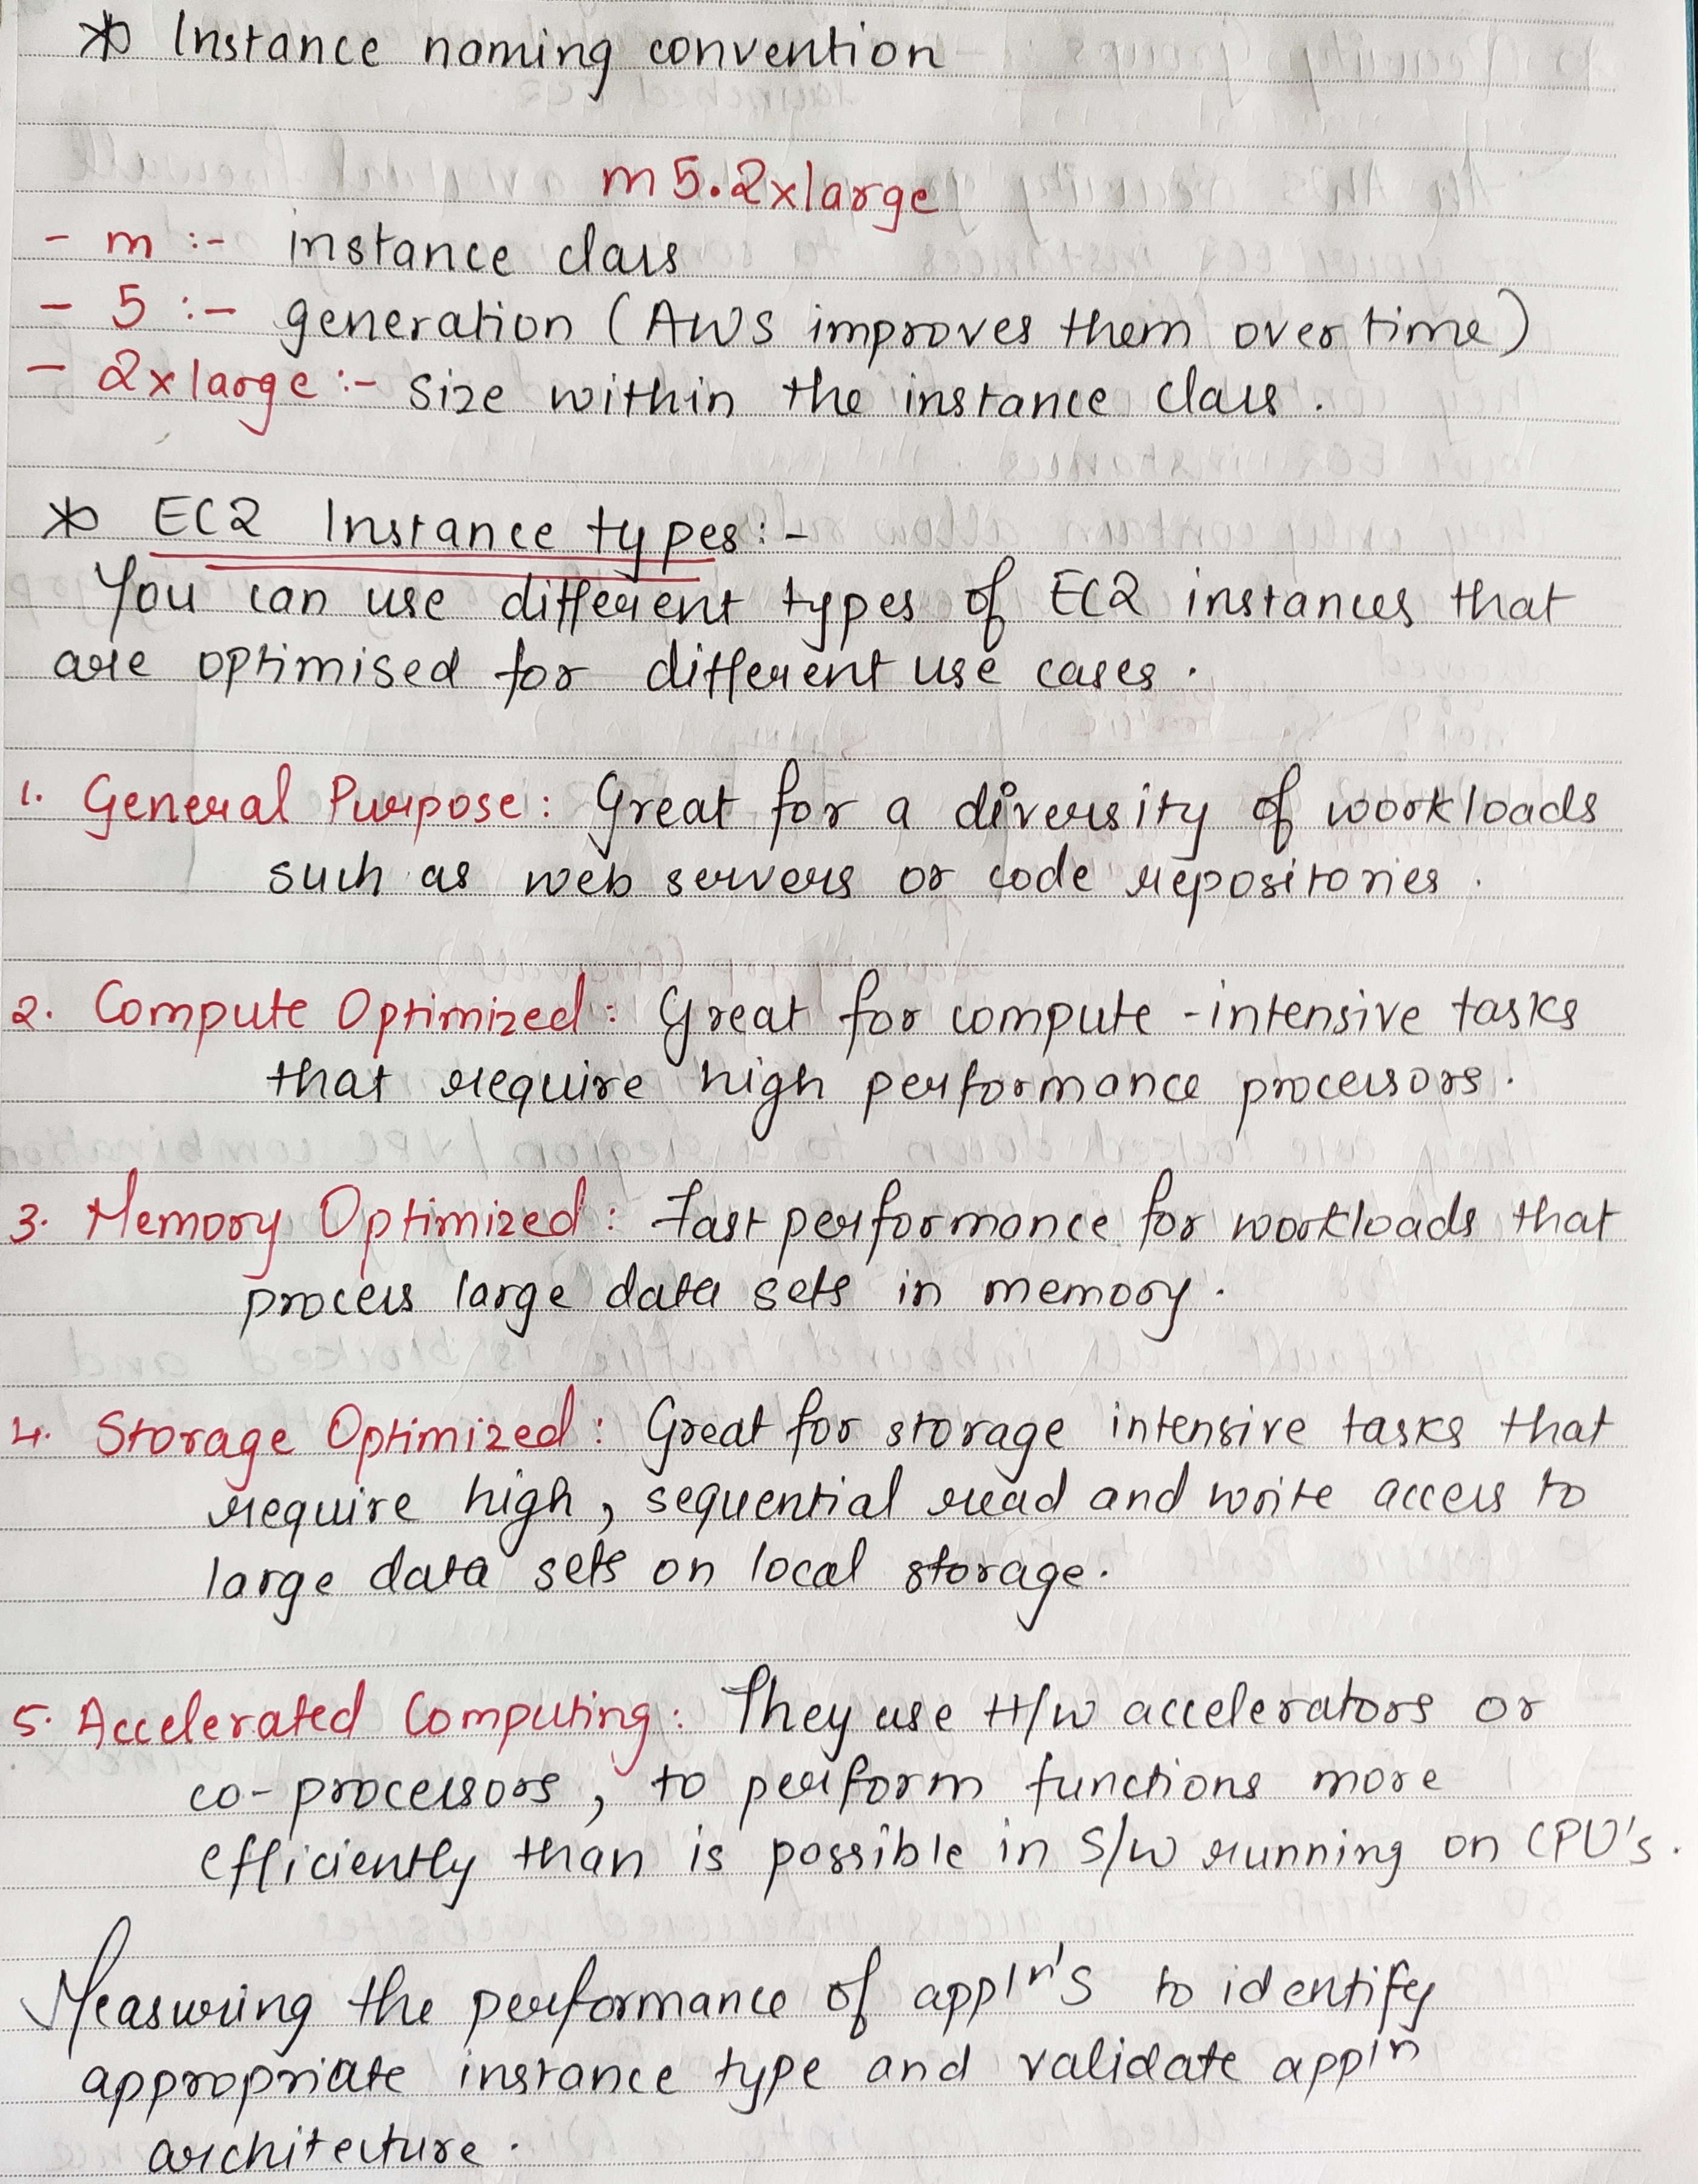 * Instance naming convention
m5.2xlarge
- m :- instance class
- 5 :- generation (AWS improves them over time)
- 2xlarge :- size within the instance class.
* EC2 Instance types :-
You can use different types of EC2 instances that
are optimised for different use cases.
1. General Purpose : Great for a diversity of workloads
such as web servers or code repositories.
2. Compute Optimized : Great for compute -intensive tasks
that require high performance processors.
3. Memory Optimized : Fast performance for workloads that
process large data sets in memory.
4. Storage Optimized : Great for storage intensive tasks that
require high, sequential read and write access to
large data sets on local storage.
5. Accelerated Computing : They use H/w accelerators or
co-processors, to perform functions more
efficiently than is possible in S/w running on CPU's.
Measuring the performance of appln's to identify
appropriate instance type and validate appln
architecture.